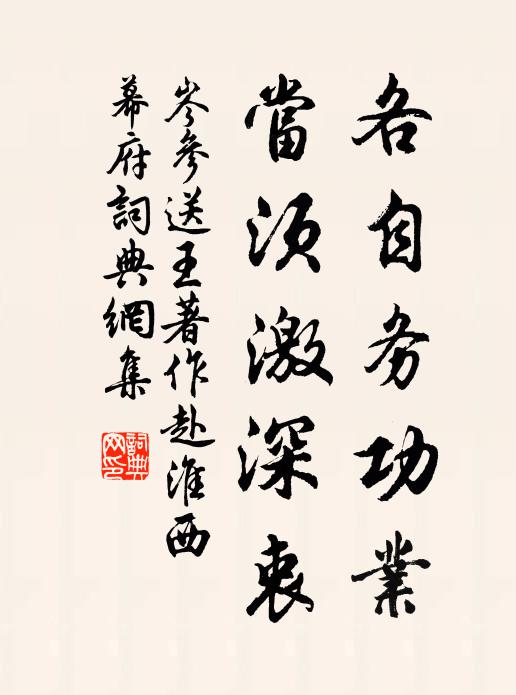 各自务功業
當須激深衷
岑參送王著作赴淮西
幕府詞典網集
詞典网印